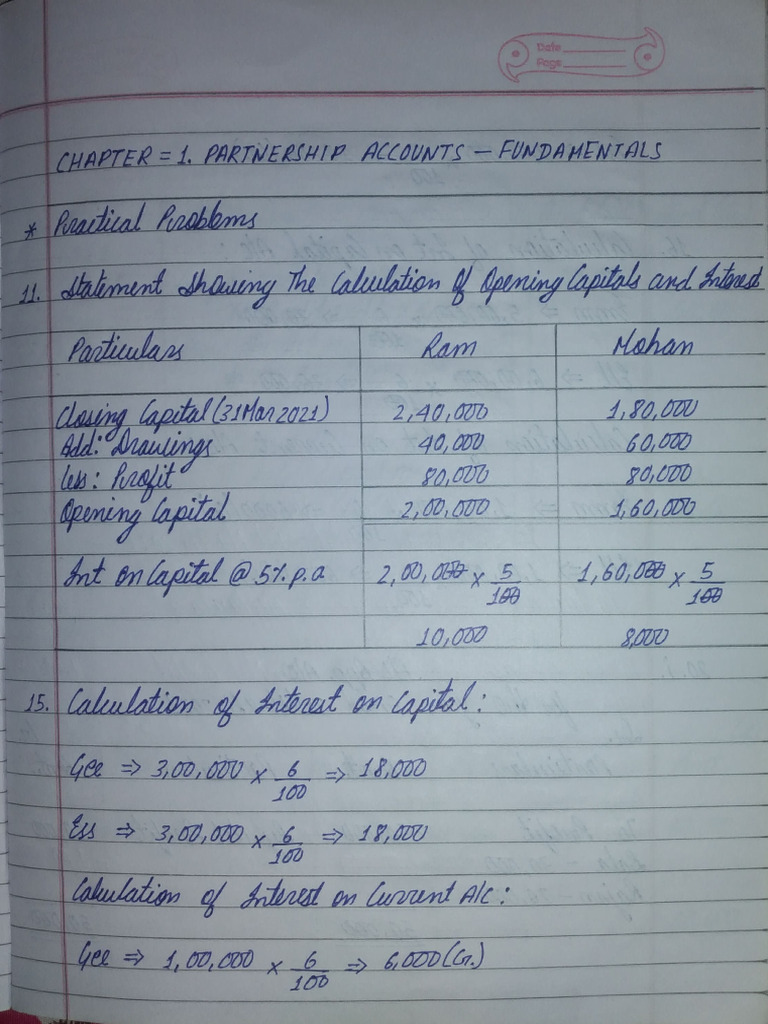 Date
Page
CHAPTER = 1. PARTNERSHIP ACCOUNTS – FUNDAMENTALS
* Practical Problems
11. Statement Showing The Calculation Of Opening Capitals and Interest
Particulars Ram Mohan
Closing Capital (31 Mar 2021) 2,40,000 1,80,000
Add: Drawings 40,000 60,000
Less: Profit 80,000 80,000
Opening Capital 2,00,000 1,60,000
Int on Capital @ 5%. p.a 2,00,000 × 5/100 1,60,000 × 5/100
10,000 8,000
15. Calculation of Interest on Capital:
Gee ⇒ 3,00,000 × 6/100 ⇒ 18,000
Ess ⇒ 3,00,000 × 6/100 ⇒ 18,000
Calculation of Interest on Current A/C:
Gee ⇒ 1,00,000 × 6/100 ⇒ 6,000 (Cr.)